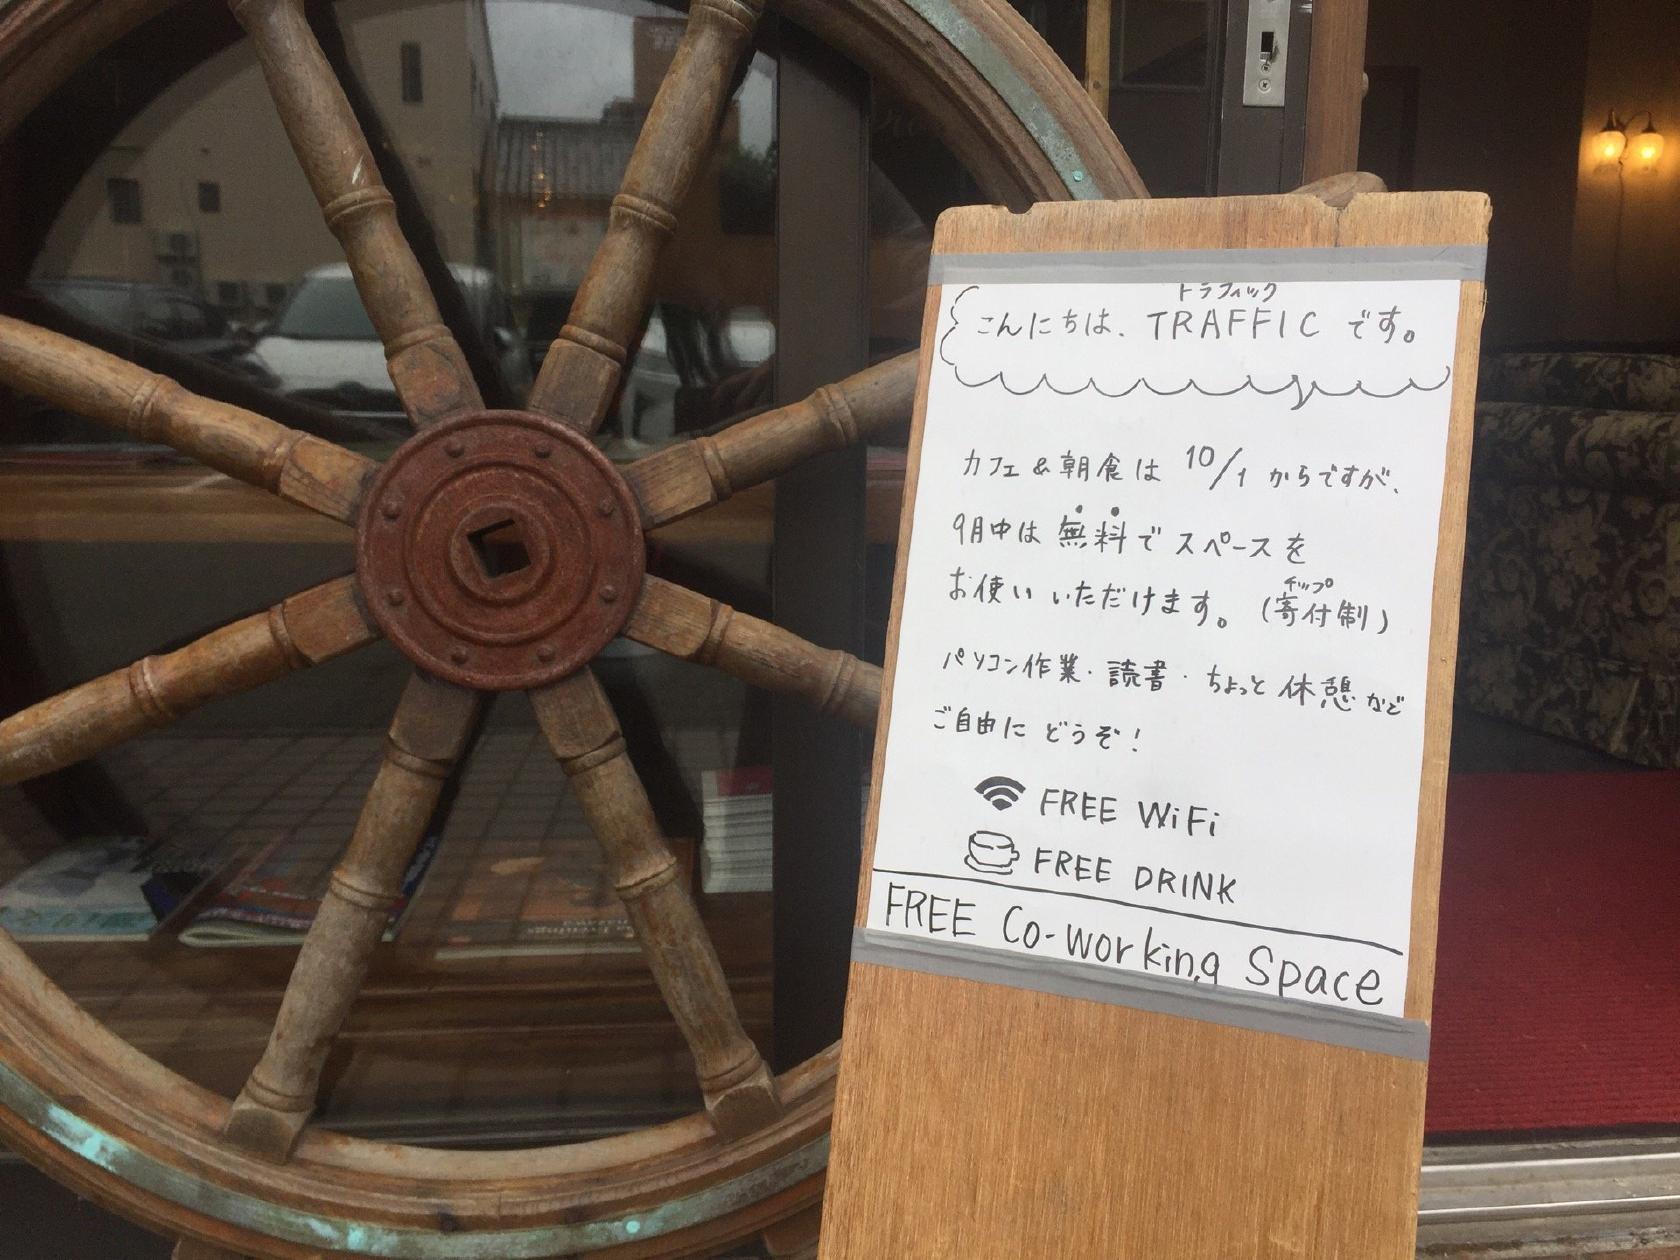 トラフィック
こんにちは、TRAFFIC です。
カフェ & 朝食は 10/1 からですが、
9月中は 無料で スペースを
お使い いただけます。(寄付制)
チップ
パソコン作業・読書・ちょっと休憩など
ご自由に どうぞ!
FREE WiFi
FREE DRINK
FREE Co-working Space